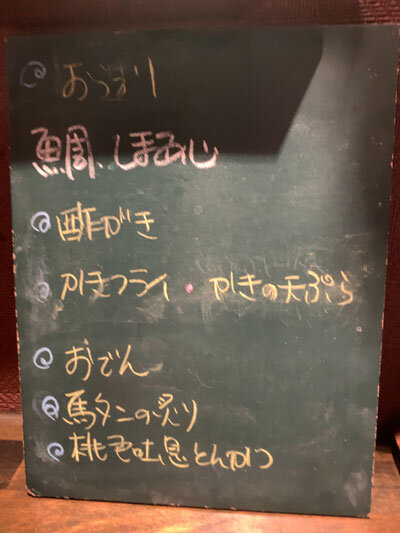 おつまり
鯛、しまあじ
酢がき
かきフライ・かきの天ぷら
おでん
馬タンの炙り
桃色吐息とんかつ